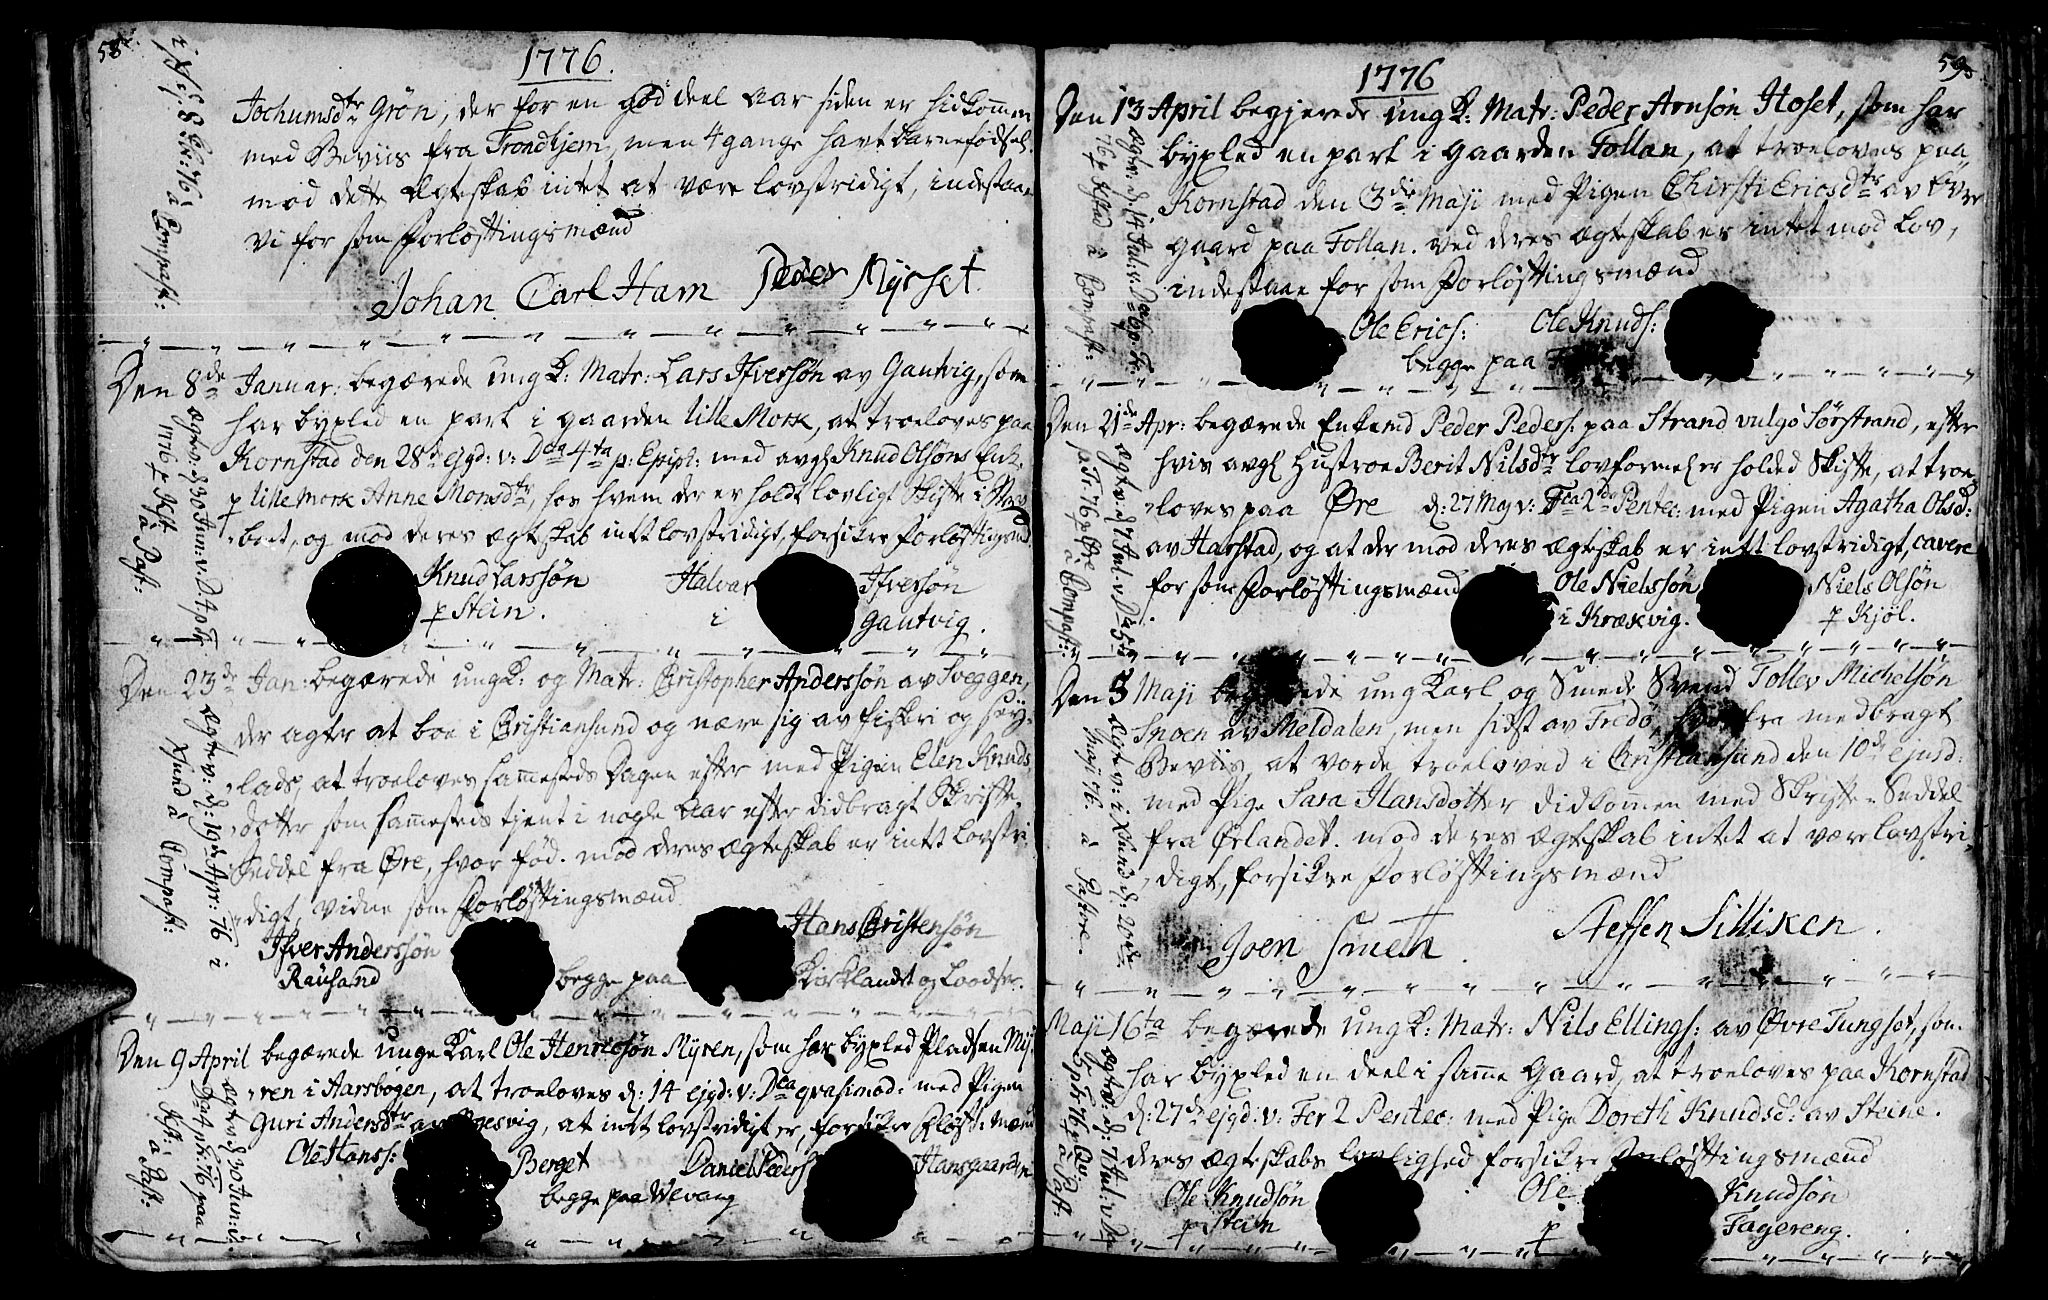 58
1776.
Jochumsdtr Grön, der for en god deel Aar siden er hidkommen
med Beviis fra Trondhjem, men 4 gange havt barnefödsel.
mod dette Ægteskab intet at være lovstridigt, indestaae
vi for som Forlöftingsmænd
Johan Carl Ham Peder Myrset.
Den 8de Januar: begærede ung K: Matr: Lars Ifversön av Gautvig, som
har byxled en part i gaarden lille Mork, at troeloves paa
Kornstad den 28de ejgd: v: Dca 4ta p: Epiph: med avgl Knud Olsöns Enk.
p lille mork Anne Monsdtr, hos hvem der er holdt lovligt Skifte i
boet, og mod deres ægteskab intt lovstridigt, forsikre Forlöftingsmd
Knud Larssön Halvar Ifversön
p Stein. i Gautvig.
Den 23de Jan: begærede ung K: og Matr: Christopher Anderssön av Sveggen,
der agter at boe i Christiansund og nære sig av fiskeri og
lads, at troeloves sammesteds Dagen efter med Pigen Elen Knuds
dotter som sammesteds tjent i nogle Aar efter didbragt Skrifte
Seddel fra Öre, hvor föd. mod deres Ægteskab er intt Lovstri
digt, vidne som Forlöftingsmænd.
Ifver Anderssön Hans Christensön
Rausand begge paa Kirklandet og Loodser.
Den 9 April begærede unge Karl Ole Henricsön Myren, som har byxled Pladsen My
ren i Aarsbögen, at troeloves d: 14 ejgd: v: Dca qvasimod: med Pigen
Guri Andersdtr av vesvig, at intt lovstridigt er, forsikre Flöft: mænd
Ole Hanss: Berget Daniel Peders Hansgaarden
begge paa Wevang
59
1776
Den 13 April begjerede ung K: Matr: Peder Arnsön Hoset, som har
byxled en part i gaarden Follan, at troeloves paa
Kornstad den 3die Maji med Pigen Chirsti Ericsdtr av Övre
gaard paa Follan. ved deres ægteskab er intet mod Lov,
indestaae for som Forlöftingsmænd
Ole Erics: Ole Knuds:
begge paa
Den 21de Apr: begærede Enkemd Peder Peders: paa Strand vulgo Sörstrand, efter
hvis avgl Hustroe Berit Nilsdtr lovformel er holded Skifte, at troe
loves paa Öre d: 27 Maj v: Fca 2da Pentec: med Pigen Agatha Olsd:
av Harstad, og at der mod deres ægteskab er intt lovstridigt, cavere
for som Forlöftingsmænd Ole Nielssön Niels Olsön
i Krækvig. p Kjöl.
Den 3 Maji begærede ung Karl og Smede Svend Tollev Michelsön
Snoen av Meldalen, men sidst av Fredö, hvorfra medbragt
Beviis, at vorde troeloved i Christiansund den 10de Ejusd:
med Pige Sara Hansdotter didkomen med Skrifte-Seddel
fra Örlandet. mod deres Ægteskab intet at være lovstri
digt, forsikre Forlöftingsmænd
Joen Smeth. Steffen Silliken.
Maji 16ta begærede ung K: Matr: Nils Ellings: av Övre Tungset, som
har byxled en deel i samme Gaard, at troeloves paa Kornstad
d: 27de ejgd: v: Fer 2 Pentec: med Pige Doreth Knudsd: av Steine.
deres Ægteskabs lovlighed forsikre Forlöftingsmænd
Ole Knudsön Ole Knudsön
p Stein p Fagereng.